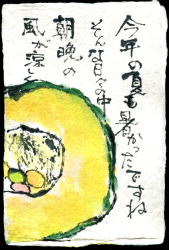 今年の夏も暑かったですね
そんな日々の中
朝晩の
風が涼しく